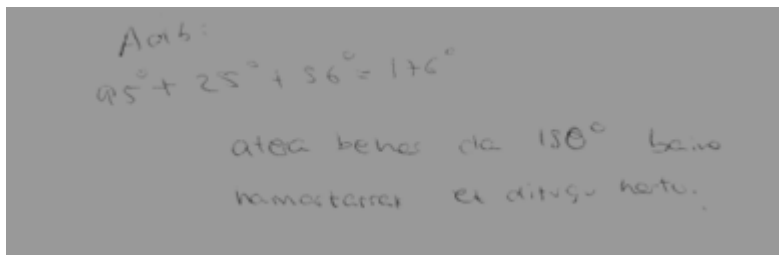 Aorb:
95° + 25° + 56° = 176°
atera behar da 180° baino
hamastarrak ez ditugu hartu.